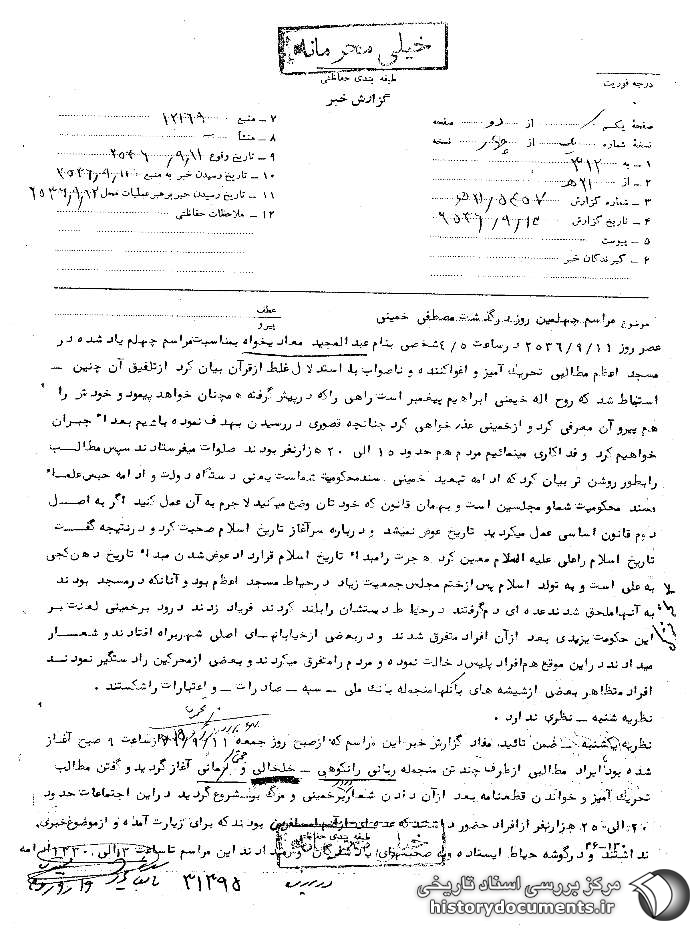 خیلی محرمانه
طبقه بندی حفاظتی
گزارش خبر
درجه فوریت
صفحهٔ یکم از دو صفحه
نسخهٔ شماره یک از چهار نسخه
۱ ـ به ۳۱۲
۲ ـ از ۲۱ هـ
۳ ـ شماره گزارش
۴ ـ تاریخ گزارش
۵ ـ پیوست
۶ ـ گیرندگان خبر
۷ ـ منبع ۱۲۱۶۹
۸ ـ منشأ
۹ ـ تاریخ وقوع ۲۵۳۶/۹/۱۱
۱۰ ـ تاریخ رسیدن خبر به منبع ۲۵۳۶/۹/۱۱
۱۱ ـ تاریخ رسیدن خبر برهبر عملیات محل ۲۵۳۶/۹/۱۲
۱۲ ـ ملاحظات حفاظتی
موضوع مراسم چهلمین روز درگذشت مصطفی خمینی
عطف
پیرو
عصر روز ۲۵۳۶/۹/۱۱ در ساعت ۴/۵ شخصی بنام عبدالمجید معادیخواه بمناسبت مراسم چهلم یاد شده در
مسجد اعظم مطالبی تحریک آمیز و اغواکننده و ناصواب با استدلال غلط از قرآن بیان کرد از تلفیق آن چنین ـ
استنباط شد که روح اله خمینی ابراهیم پیغمبر است راهی را که در پیش گرفته همچنان خواهد پیمود و خودش را
هم پیرو آن معرفی کرد و از خمینی عذرخواهی کرد چنانچه قصوری در رسیدن بهدف نموده باشیم بعداً جبران
خواهیم کرد و فداکاری مینمائیم مردم هم حدود ۱۵ الی ۲۰ هزار نفر بودند صلوات میفرستادند سپس مطالب
را بطور روشن تر بیان کرد که ادامه تبعید خمینی سند محکومیت شماست یعنی دستگاه دولت و ادامه حبس علماء
سند محکومیت شما و مجلسین است و بهمان قانون که خودتان وضع میکنید لاجرم به آن عمل کنید اگر به اصل
دوم قانون اساسی عمل میکردید تاریخ عوض نمیشد و درباره سرآغاز تاریخ اسلام صحبت کرد و در نتیجه گفت
تاریخ اسلام را علی علیه السلام معین کرد هجرت را مبداء تاریخ اسلام قرار داد عوض شدن مبداء تاریخ دهن کجی
به علی است و به تولد اسلام پس از ختم مجلس جمعیت زیاد در حیاط مسجد اعظم بود و آنانکه در مسجد بودند
به آنها ملحق شدند عده ای دم گرفتند در حیاط دستشان را بلند کردند فریاد زدند درود بر خمینی لعنت بر
این حکومت یزیدی بعد از آن افراد متفرق شدند و در بعضی از خیابانهای اصلی شهر براه افتادند و شعار
میدادند در این موقع هم افراد پلیس دخالت نموده و مردم را متفرق میکردند و بعضی از محرکین را دستگیر نمودند
افراد متظاهر بعضی از شیشه های بانکها منجمله بانک ملی ـ سپه ـ صادرات ـ و اعتبارات را شکستند .
نظریه شنبه ـ نظری ندارد .
نظریه یکشنبه ـ ضمن تائید مفاد گزارش خبر این مراسم که از صبح روز جمعه ۳۶/۹/۱۱ از ساعت ۹ صبح آغاز
شده بود با ایراد مطالبی از طرف چند تن منجمله ربانی رانکوهی ـ خلخالی و کرمانی آغاز گردید و گفتن مطالب
تحریک آمیز و خواندن قطعنامه بعد از آن دادن شعار بر خمینی و مرگ بر شروع گردید در این اجتماعات حدود
۲۰ الی ۲۵ هزار نفر از افراد حضور داشتند که عده ای از آنها مسافرین بودند که برای زیارت آمده و از موضوع خبری
نداشتند و در گوشه حیاط ایستاده و به صحبتهای یاد شدگان این مراسم تا ساعت ۱۲ الی ۱۳۳۰ ادامه
۳۱۳۹۵
مرکز بررسی اسناد تاریخی
historydocuments.ir